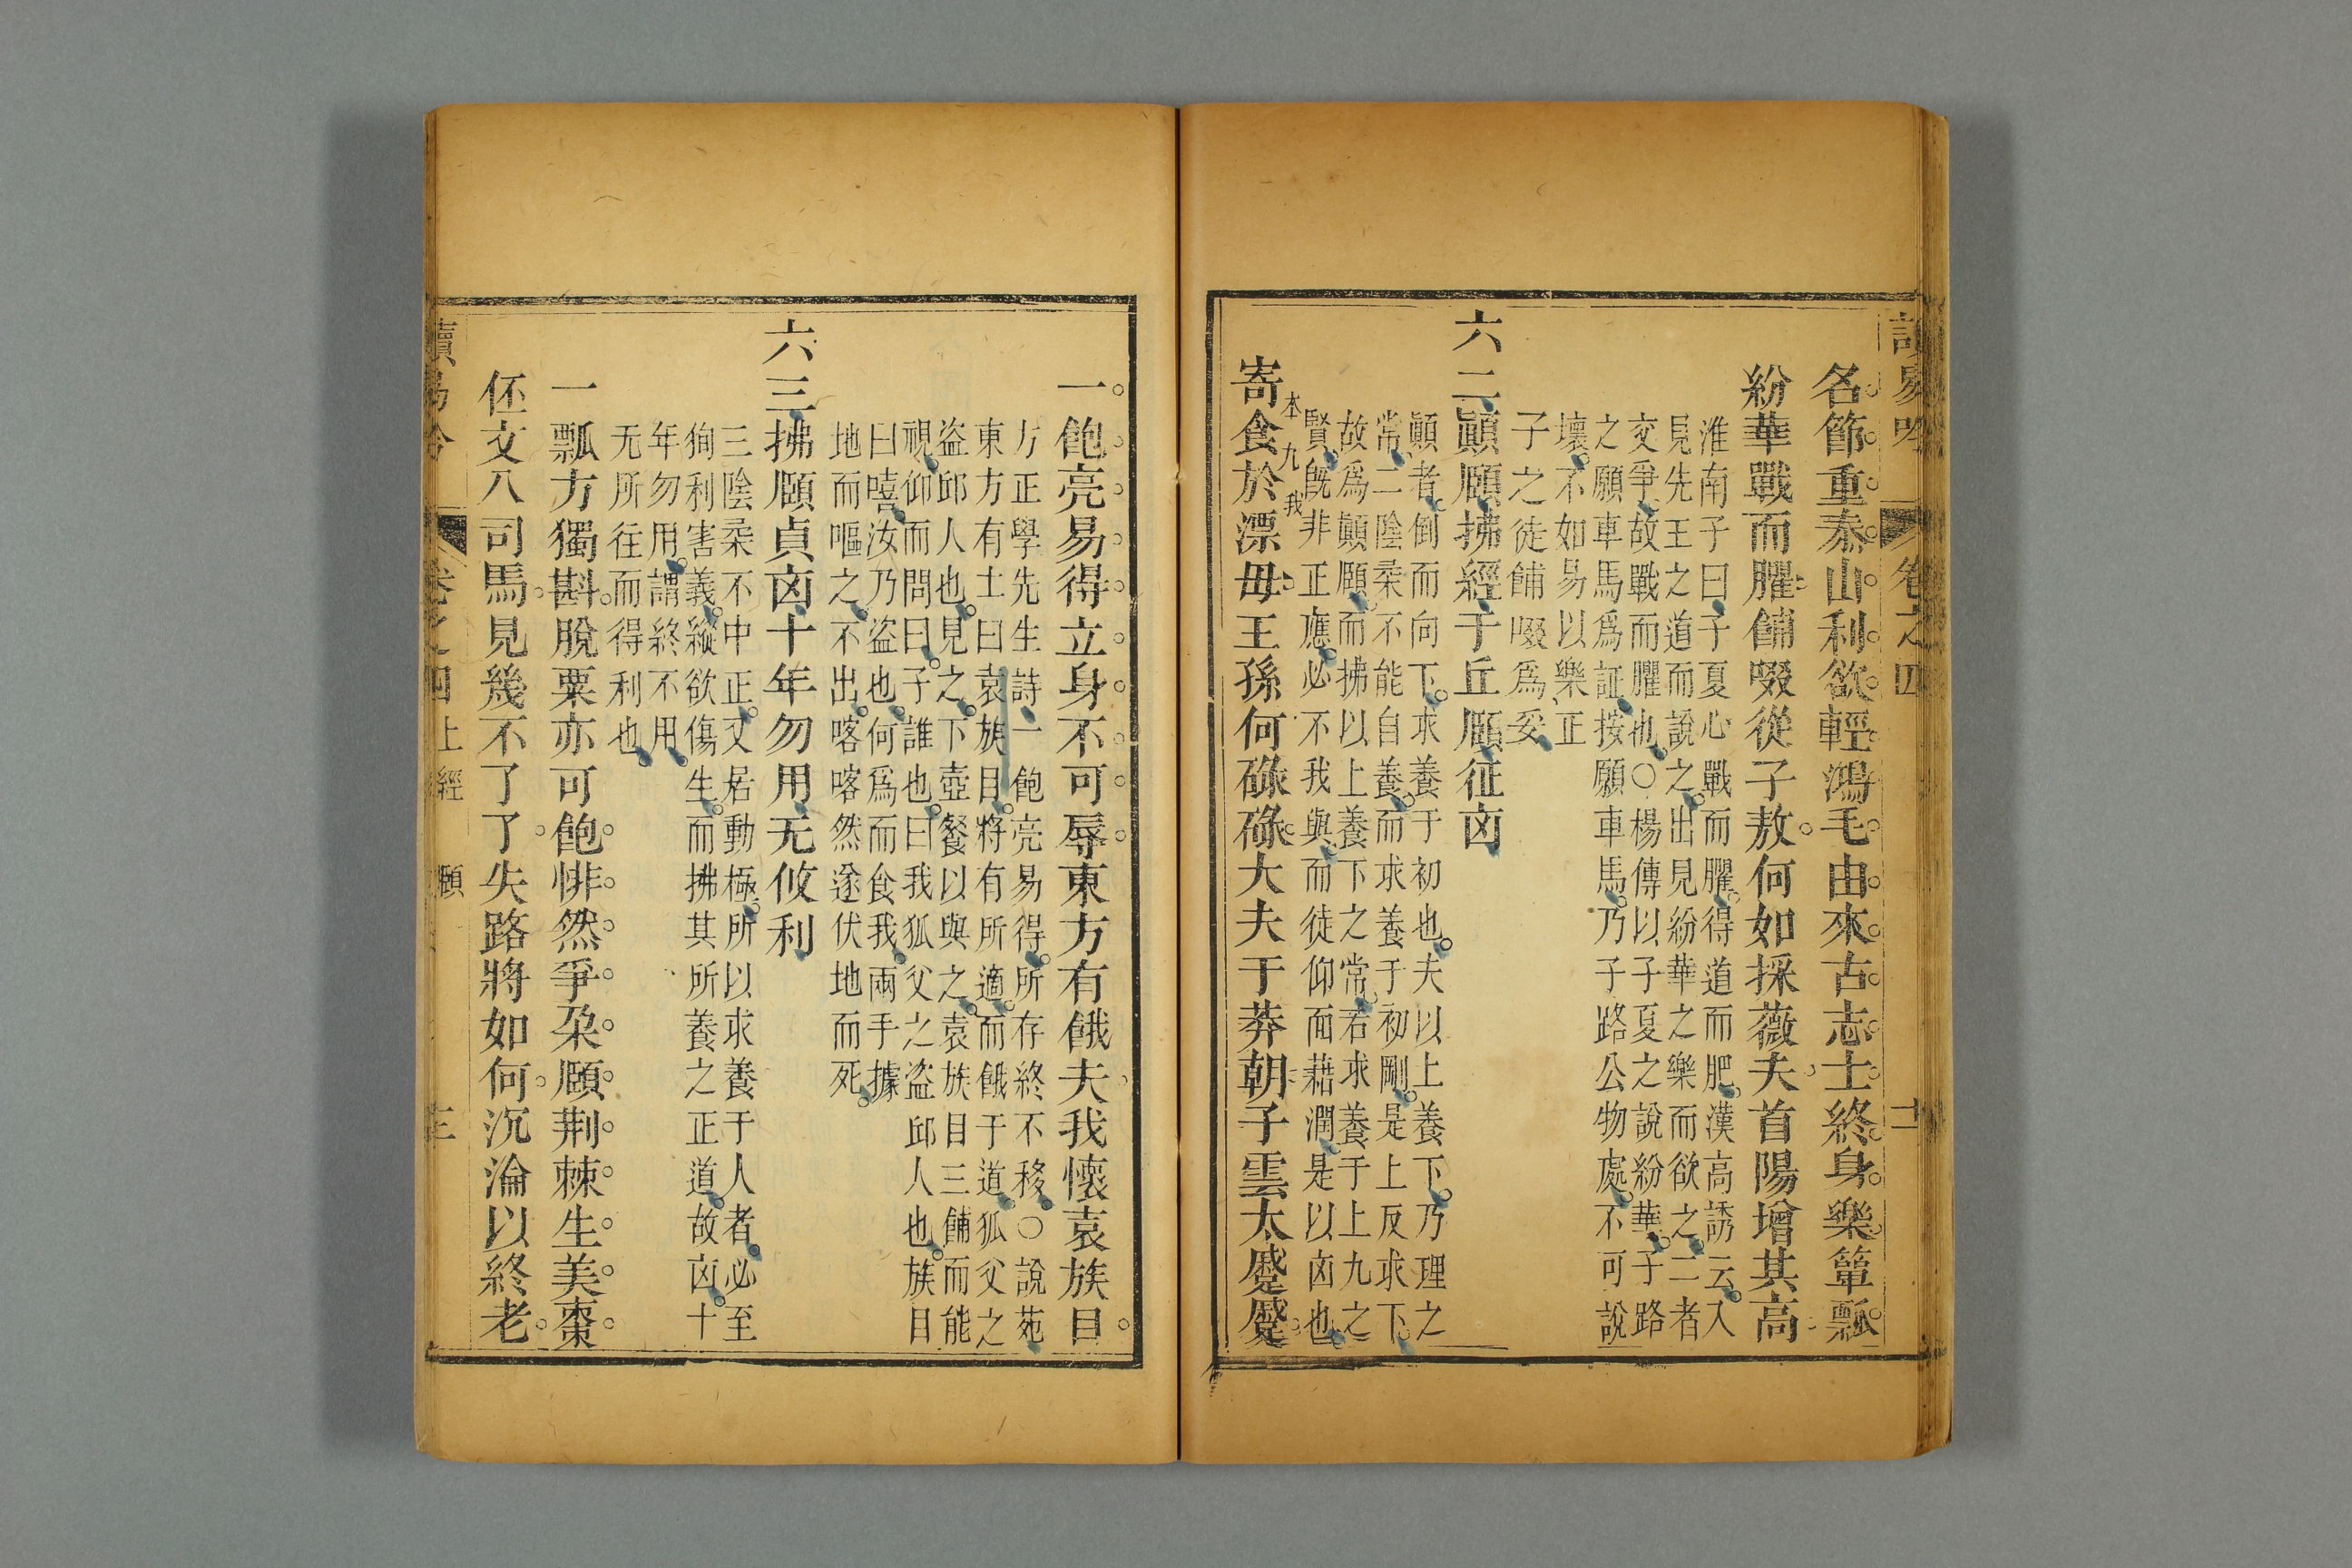 讀易吟 卷之四 十一
名節重泰山利欲輕鴻毛由來古志士終身樂簞瓢
紛華戰而臞餔啜從子敖何如採薇夫首陽增其高
淮南子曰子夏心戰而臞得道而肥漢高誘云入
見先王之道而說之出見紛華之樂而欲之二者
交爭故戰而臞也○楊傳以子夏之說紛華子路
之願車馬為証按願車馬乃子路公物處不可說
壞不如易以樂正
子之徒餔啜為妥
六二顚頤拂經于丘頤征凶
顚者倒而向下求養于初也夫以上養下乃理之
常二陰柔不能自養而求養于初剛是上反求下
故為顚頤而拂以上養下之常若求養于上九之
賢旣非正應必不我與而徒仰面藉潤是以凶也
本九我
寄食於漂毋王孫何碌碌大夫于莽朝子雲太蹙蹙
一飽亮易得立身不可辱東方有餓夫我懷袁族目
方正學先生詩一飽亮易得所存終不移○說苑
東方有士曰袁族目將有所適而餓于道狐父之
盜邱人也見之下壺餐以與之袁族目三餔而能
視仰而問曰子誰也曰我狐父之盜邱人也族目
曰嘻汝乃盜也何為而食我兩手據
地而嘔之不出喀喀然遂伏地而死
六三拂頤貞凶十年勿用无攸利
三陰柔不中正又居動極所以求養于人者必至
狥利害義縱欲傷生而拂其所養之正道故凶十
年勿用謂終不用
无所往而得利也
一瓢方獨斟脫粟亦可飽悱然爭朶頤荆棘生美棗
伾文八司馬見幾不了了失路將如何沉淪以終老
讀易吟 卷之四上經 頤 三